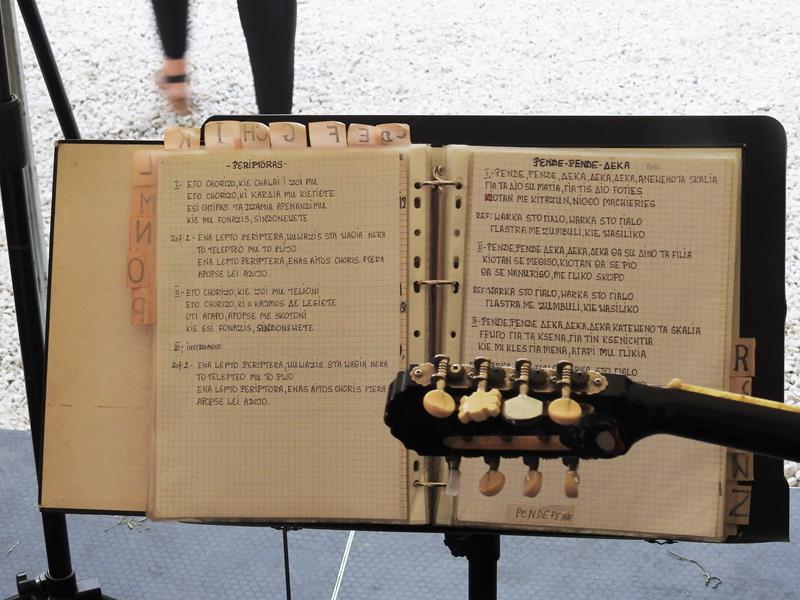 -PERIPTORAS-
I- EГO CHORIZO, KIE CHALAI I ZOI MU
EГO CHORIZO, KI KARDIA MU KIEГIETE
ESI CHTIPAS TA TZAMIA APENANDZI MU
KIE MU FONAZIS, SINDONEWETE
Ref: 2- ENA LEPTO PERIPTERA, MILIAZIS STA WAΘIA NERA
TO TELEFTEO MU TO FILJO
ENA LEPTO PERIPTERA, ENAS AITOS CHORIS FTERA
APOPSE LEI ADIJO.
II- EГO CHORIZO, KIE ZOI MU TELIONI
EГO CHORIZO, KI O KAJMOS ΔE LEGIETE
OTI AГAPO, APOPSE ME SKOTONI
KIE ESI FONAZIS, SINDONEWETE
III- INSTRUMENT.
Ref: 2- ENA LEPTO PERIPTERA, MILIAZIS STA WAΘIA NERA
TO TELEFTEO MU TO FILJO
ENA LEPTO PERIPTORA, ENAS AITOS CHORIS FTERA
APOPSE LEI ADIJO.
PENDE-PENDE-ΔEKA
I-PENDE, PENDE, ΔEKA, ΔEKA, ΔEKA, ANEWENO TA SKALIA
ГIA TA ΔIO SU MATIA, ГIA TIS ΔIO FOTIES
KIOTAN ME KITAZUN, NIOΘO MACHIERIES
REF: WARKA STO ГIALO, WARKA STO ГIALO
ГLASTRA ME ZUMBULI, KIE WASILIKO
II-PENDE, PENDE ΔEKA, ΔEKA, ΔEKA ΘA SU ΔINO TA FILIA
KIOTAN SE MEΘISO, KIOTAN ΘA SE PIO
ΘA SE NANURISO, ME ГLIKO SKOPO
REF: WARKA STO ГIALO, WARKA STO ГIALO
ГLASTRA ME ZUMBULI, KIE WASILIKO
II-PENDE, PENDE ΔEKA, ΔEKA, ΔEKA KATEWENO TA SKALIA
FEWГO ГIA TA KSENA, ГIA TIN KSENICHTIA
KIE MI KLES ГIA MENA, AГAPI MU ГLIKIA
WARKA STO ГIALO
PENDEPENDE
K I H C G F E D C
L
M
N
O
P
R
S
N
Z